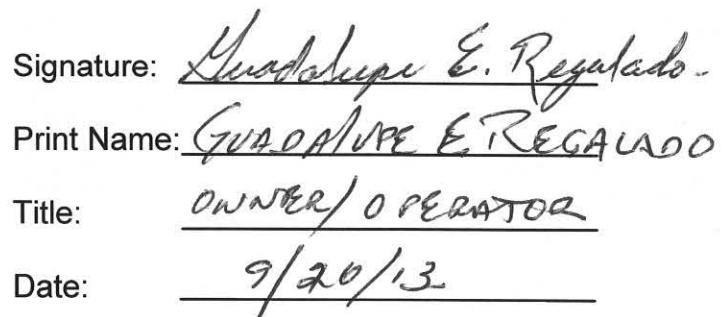 Signature: Guadalupe E. Regalado
Print Name: GUADALUPE E REGALADO
Title: OWNER/OPERATOR
Date: 9/20/13